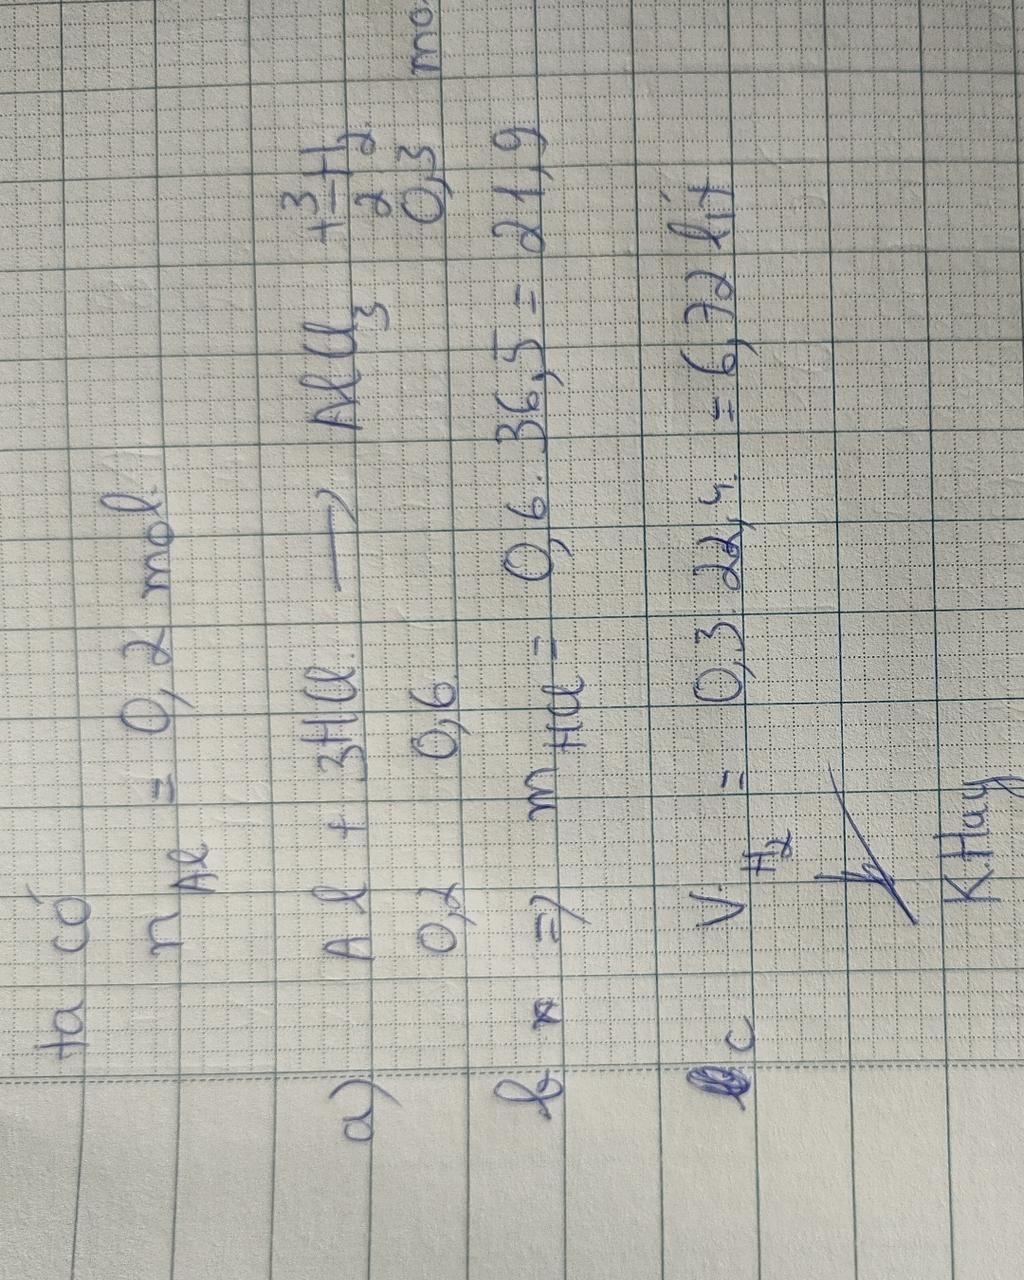 ta có
n Al = 0,2 mol.
a) Al + 3HCl. → AlCl3 + 3/2 H2
0,2 0,6 0,3 mo
b => mHCl = 0,6. 36,5 = 21,9
c V H2 = 0,3. 22,4. = 6,72 lít
K.Huy